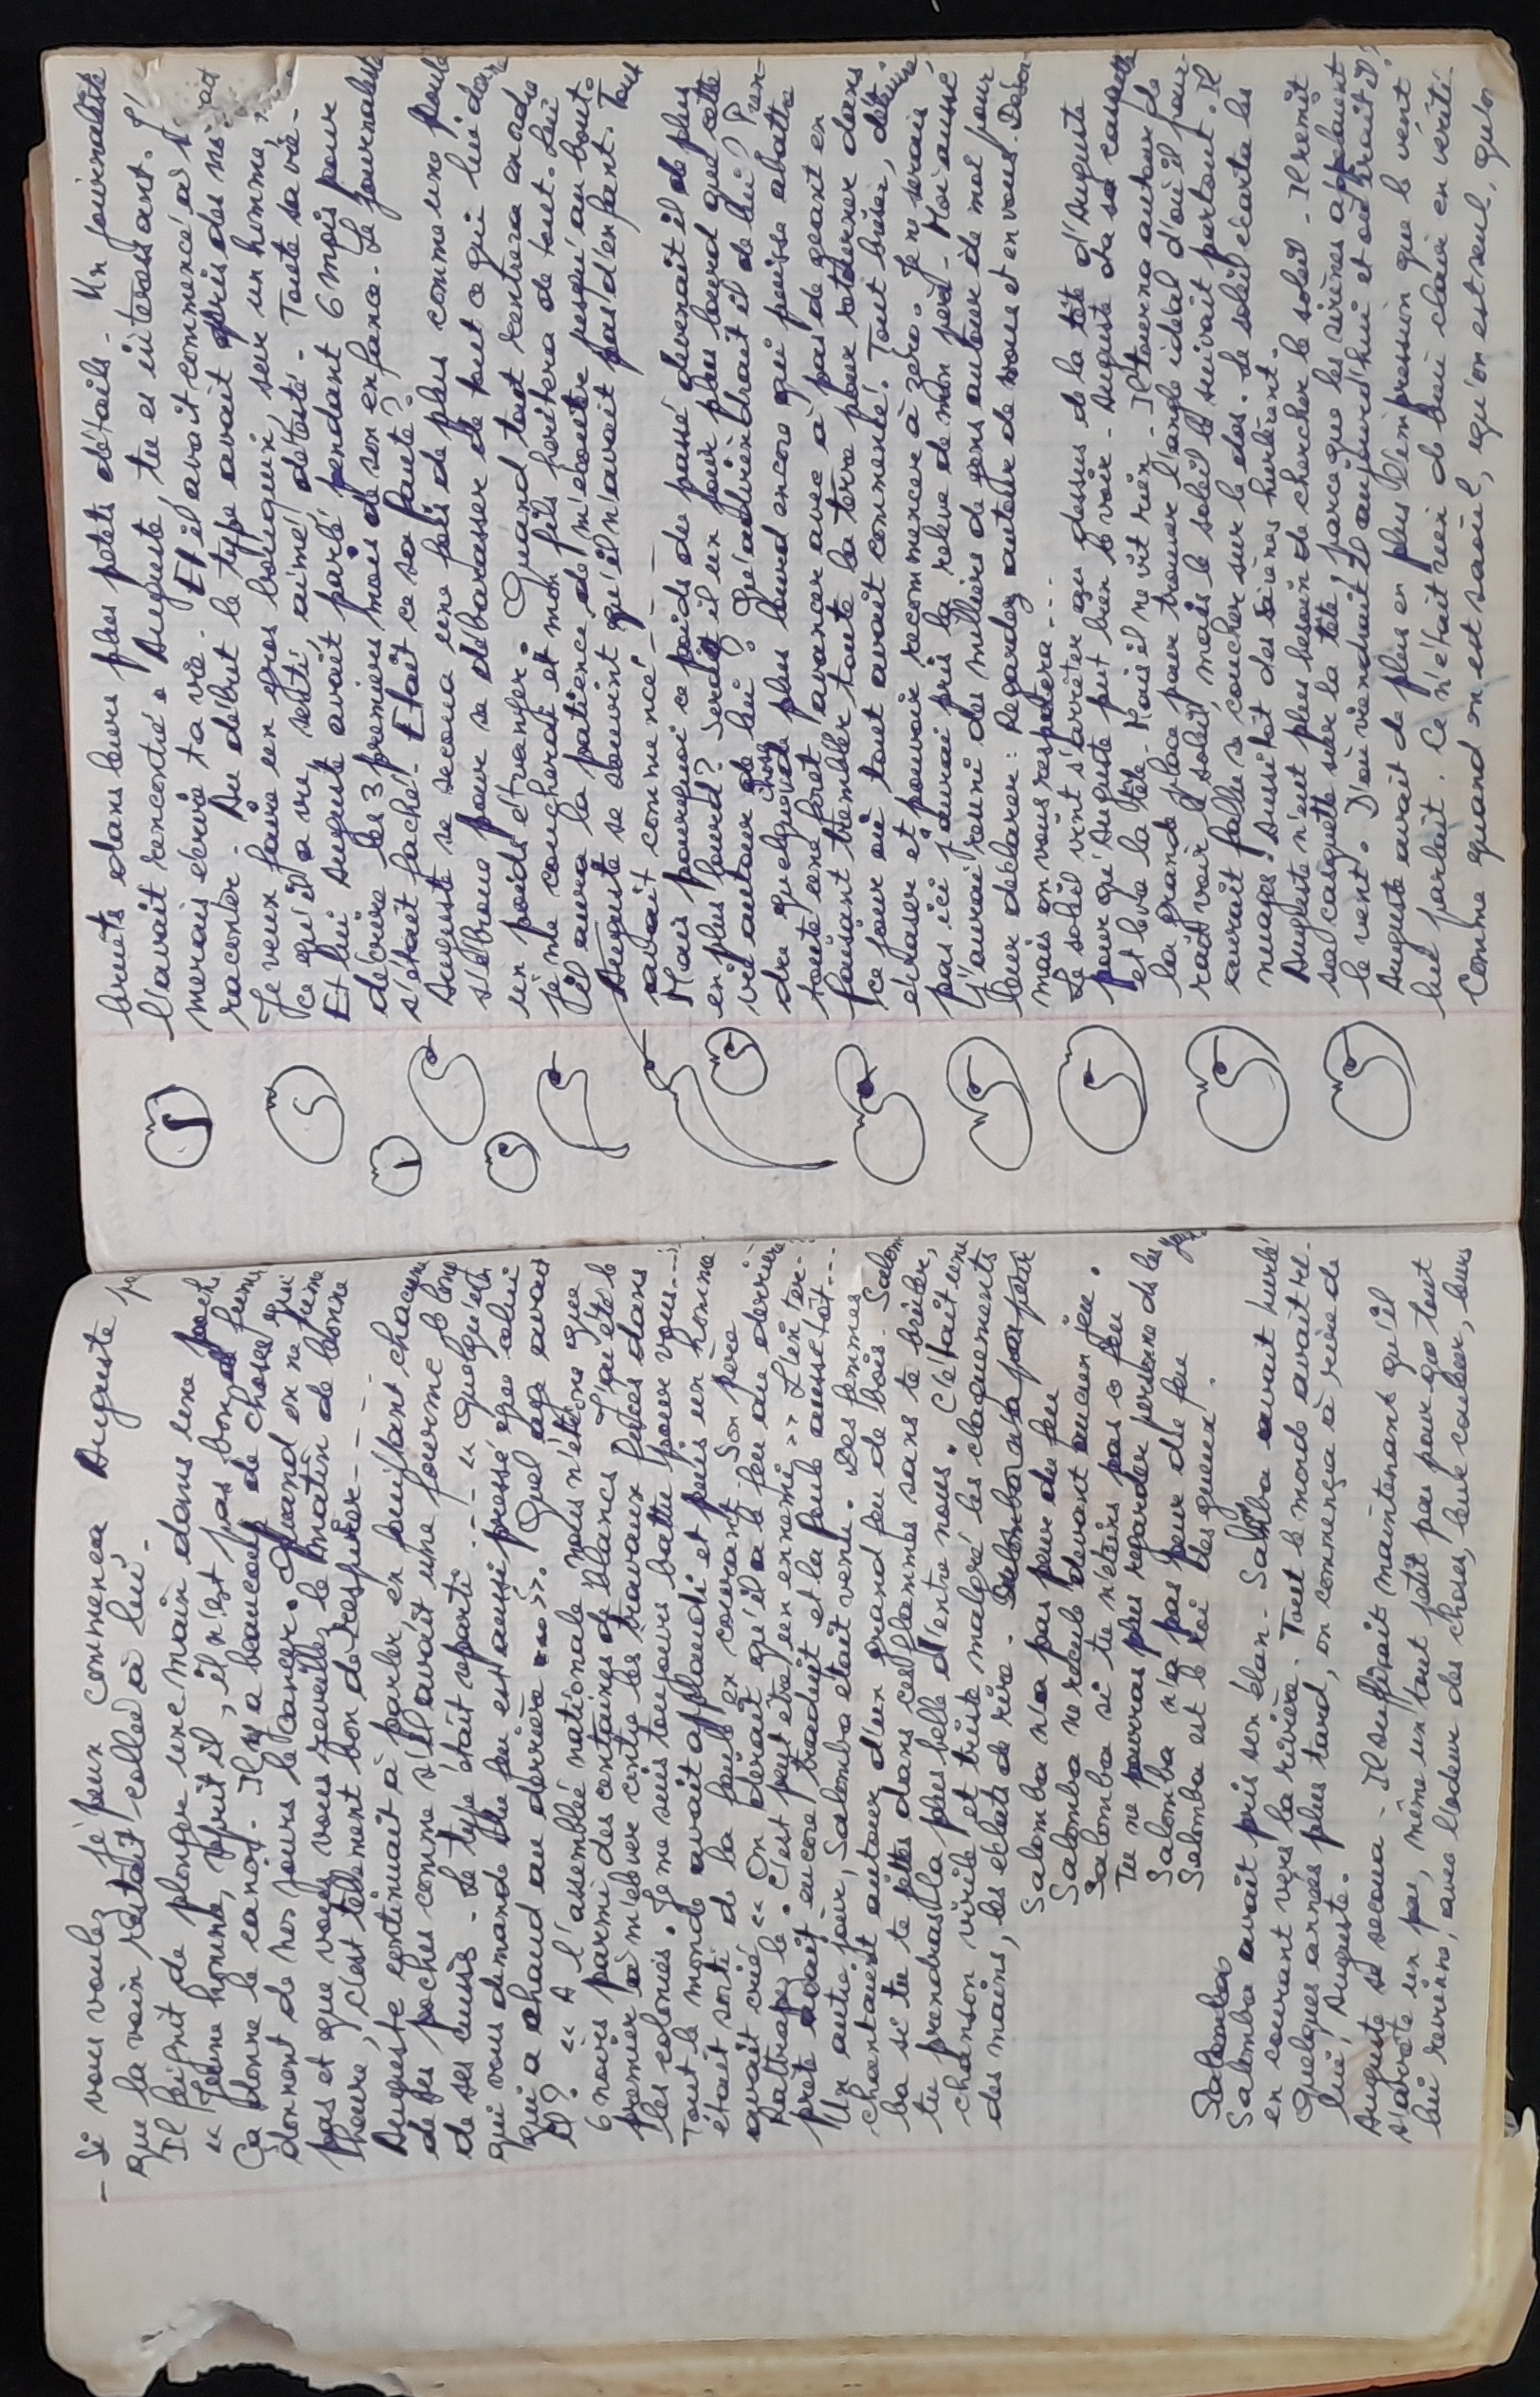 - Si vous voulez je peux commença Auguste
que la voix restait collée à lui.
Il feignit de plonger une main dans une poche
« Jeune homme, reprit-il, il n'est pas bon de fumer
Ça donne le cancer. Il y a beaucoup de choses qui
donnent de nos jours le Cancer. Quand on ne fume
pas et que vous vous reveillez le matin de bonne
heure, c'est tellement bon de respirer - - -
Auguste continuait à parler, en fouillant chacune
de ses poches comme s'il avait une fourmi le long
de ses cuisses. Le type était reparti - - « Quelqu'un
qui vous demande du feu est aussi pressé que celui
qui a chaud au derrière ». Quel âge avait
il? « A l'assemblée nationale nous n'étions que
6 noirs parmi des centaines de blancs. J'ai été le
premier à m'élever contre les travaux forcés dans
les colonies. Je me suis toujours battu pour vous...
Tout le monde avait applaudi et puis un homme
était sorti de la foule en courant. Son père
avait crié « On dirait qu'il a le feu au derrière
Rattrapez le. C'est peut être un ennemi » L'inter-
prète avait encore traduit et la foule aussitôt...
Un autre jour, Salomba était venu. Des femmes
chantaient autour d'un grand feu de bois. Salom
ba si tu te jettes dans ces flammes sans te brûler,
tu prendras la plus belle d'entre nous. C'était une
chanson virile et triste malgré les claquements
des mains, les éclats de rire. Salomba n'a pas peur
Salomba n'a pas peur du feu
Salomba ne recule devant aucun feu.
Salomba si tu n'éteins pas ce feu
Tu ne pourras plus regarder personne ds les
Salomba n'a pas peur du feu
Salomba est le roi des gueux.
Salomba
Salomba avait pris son élan. Salomba avait hurlé
en courant vers la rivière. Tout le monde avait ri.
Quelques années plus tard, on commença à rire de
lui, Auguste.
Auguste se secoua. Il suffisait maintenant qu'il
s'arrête un peu, même un tout petit peu pour que tout
lui revienne, avec l'odeur des choses, leur couleur, leurs
bruits dans leurs plus petits détails. Un journaliste
l'avait rencontré « Auguste, tu es intéressant. J'
merais écrire ta vie. Et il avait commencé à
raconter. Au début le type avait pris des no
Je veux faire un gros bouquin, sur un homme,
ce qu'il a vu, senti, aimé, détesté. Toute sa vie.
Et lui Auguste avait parlé pendant 6 mois pour
décrire les 3 premiers mois de son enfance. Le journaliste
s'était fâché. Etait ce sa faute?
Auguste se secoua une fois de plus comme une poule
s'ébroue pour se débarasser de tout ce qui lui
un poids étranger. Quand tout rentrera en ordre
je me coucherai et mon fils héritera de tout. Lui
il aura la patience de m'écouter jusqu'au bout.
Auguste se souvint qu'il n'avait pas d'enfant. Tout
avait commencé - - -
Mais pourquoi ce poids du passé devenait il de plus
en plus lourd? Serait il un jour plus lourd que cette
vie autour de lui? Qu'adviendrait il de lui? Pren-
dre quelque chose de plus lourd encore qui puisse abattre
toute une forêt, avancer avec à pas de géant en
faisant trembler toute la terre pour retourner dans
ce jour où tout avait commencé. Tout briser, détruire,
écraser et pouvoir recommencer à zéro. Je ne serais
pas ici j'aurai pris la relève de mon père. Moi aussi
j'aurai réuni des milliers de gens autour de moi pour
leur déclarer: Regardez autour de vous et en vous. Désor-
mais on vous respectera - - -
Le soleil vint s'arrêter au dessus de la tête d'Auguste
pour qu'Auguste put bien le voir. Auguste ota sa casquette
et leva la tête. Mais il ne vit rien. Il tourna autour de
la grande place pour trouver l'angle idéal d'où il pour-
rait voir le soleil, mais le soleil le suivait partout. Il
aurait fallu se coucher sur le dos. Le soleil écarta les
nuages. Aussitôt des sirènes hurlèrent.
Auguste n'eut plus besoin de chercher le soleil. Il remit
sa casquette sur la tête, parce que les sirènes appelaient
le vent. D'où viendrait il aujourd'hui et où irait il?
Auguste avait de plus en plus l'impression que le vent
lui parlait. Ce n'était rien de bien clair en vérité.
Comme quand on est saoûl, qu'on est seul, qu'on